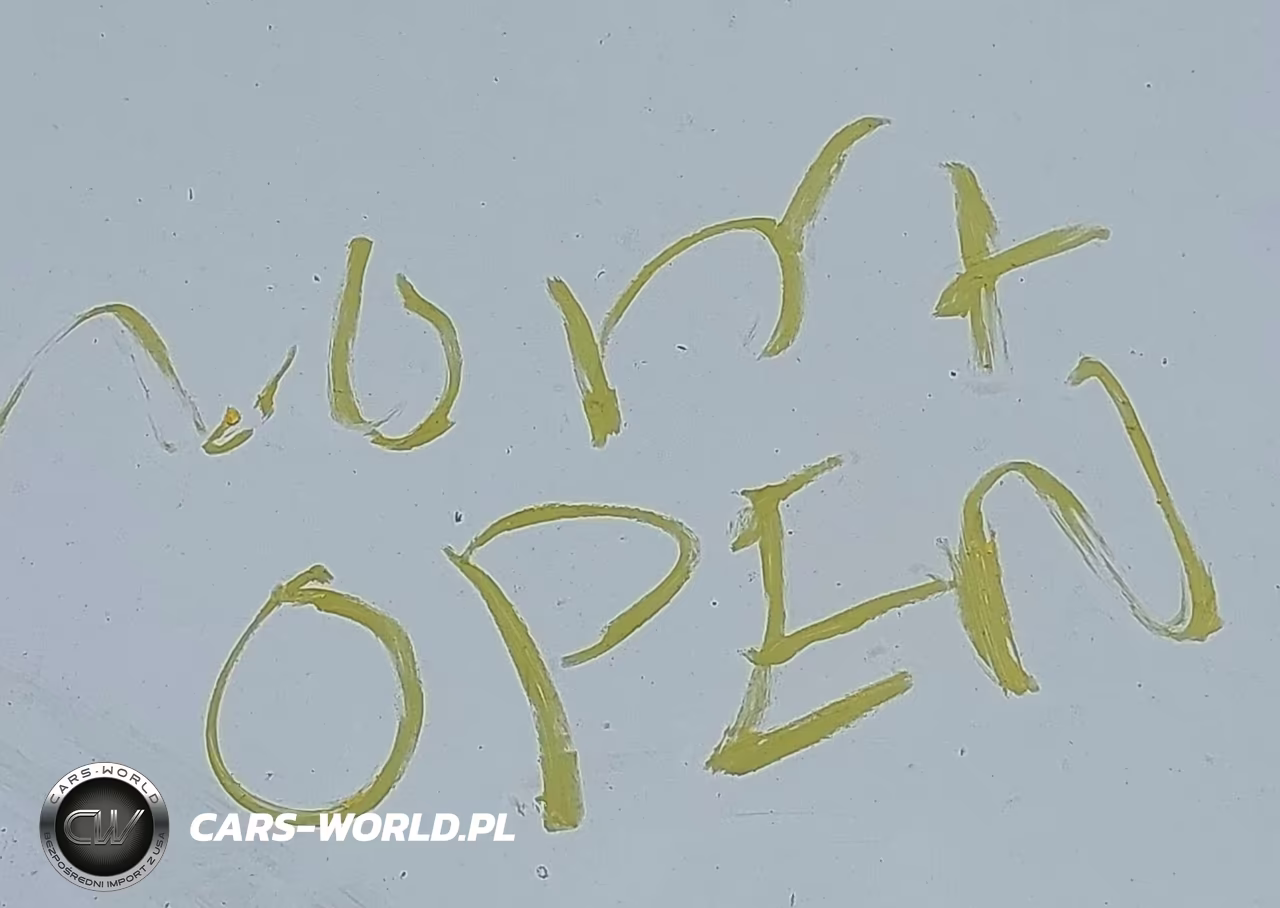 won't
OPEN
CARS-WORLD
CW
BEZPOŚREDNI IMPORT Z USA
CARS-WORLD.PL